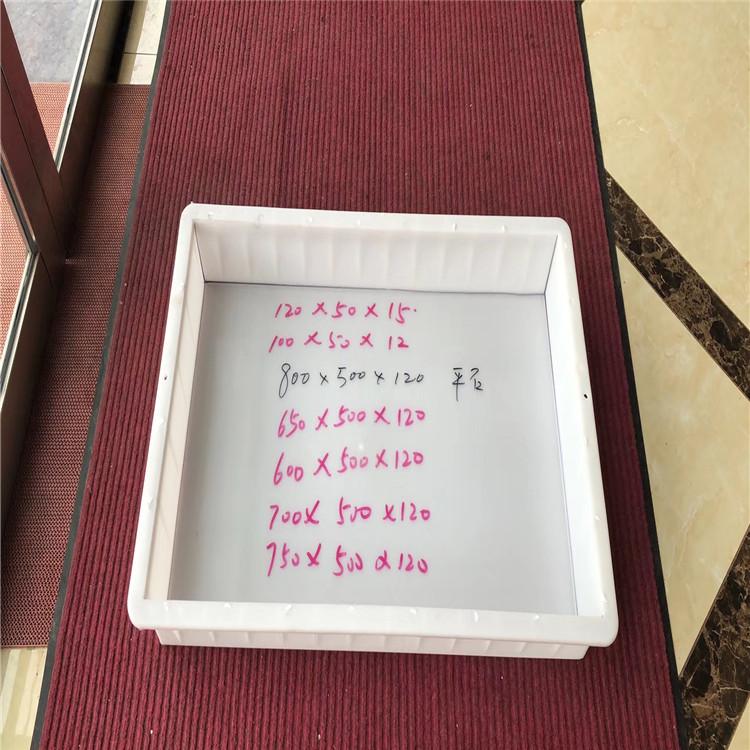 120 x 50 x 15.
100 x 50 x 12
800 x 500 x 120 平
650 x 500 x 120
600 x 500 x 120
700 x 500 x 120
750 x 500 x 120